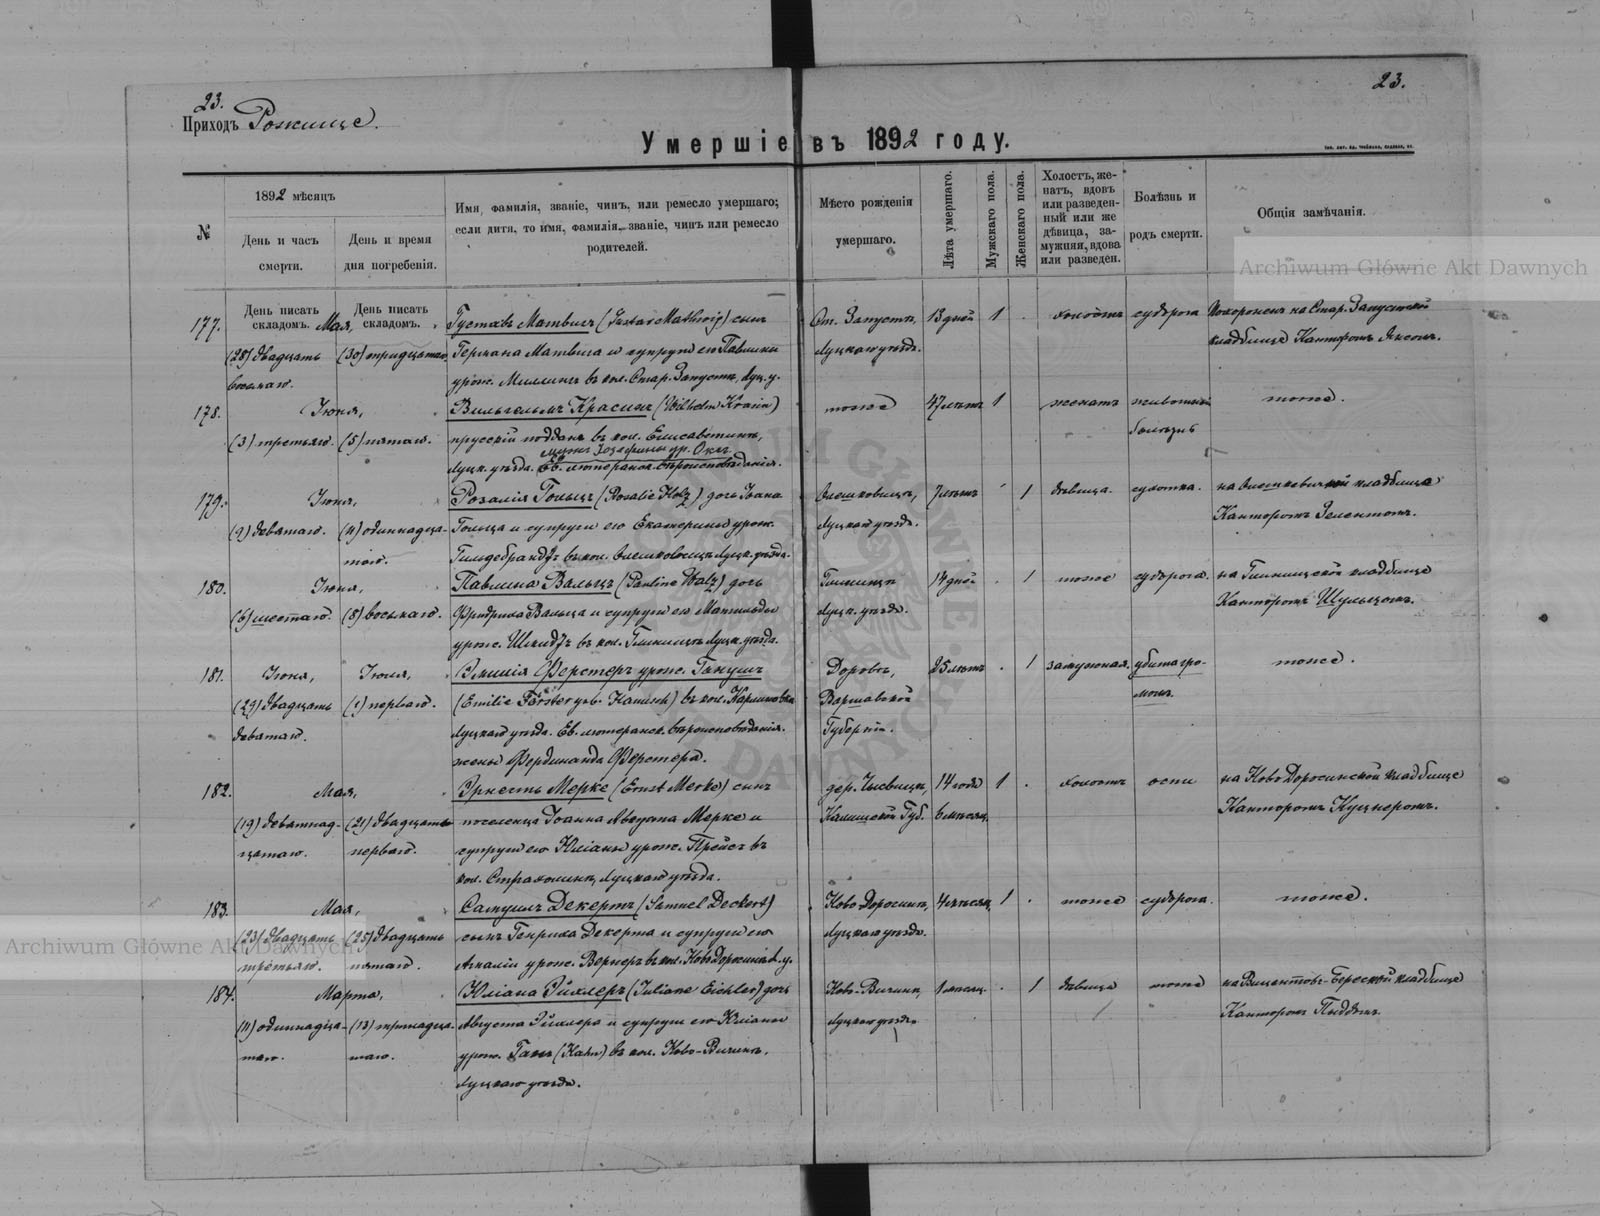 23.
23.
Приходъ Рожище.
Умершіе въ 1892 году.
№
1892 мѣсяцъ
День и часъ смерти.
День и время дня погребенія.
Имя, фамилія, званіе, чинъ, или ремесло умершаго;
если дитя, то имя, фамилія, званіе, чинъ или ремесло
родителей.
Мѣсто рожденія
умершаго.
Лѣта умершаго.
Мужскаго пола.
Женскаго пола.
Холостъ, же-
натъ, вдовъ
или разведен-
ный или же
дѣвица, за-
мужняя, вдова
или разведен.
Болѣзнь и
родъ смерти.
Общія замѣчанія.
День писать
складомъ.
День писать
складомъ.
177. Мая, Густавъ Матвигъ (Gustav Mathwig) сынъ Ст. Запустъ, 13 дней 1 . холостъ судорога Похороненъ на Стар. Запустской
(28) двадцать (30) тридцатаго Германа Матвига и супруги его Павлины Луцкаго уѣзда. кладбищѣ Канторомъ
восьмаго. урож. Миллингъ въ кол. Стар. Запустъ, Луц. у.
178. Іюня, Вильгельмъ Красинъ (Wilhelm Krasin) тоже 47 лѣтъ 1 женатъ тоже.
(3) третьяго. (5) пятаго. прусскій поддан. въ кол. Елисаветинъ, болѣзнь
мужъ Іозефины ур. Окли
Луцк. уѣзда. Ев. лютеранск. вѣроисповѣданія.
179. Іюня, Розалія Гольцъ (Rosalie Holz) дочь Іоана Олешковицъ, 7 лѣтъ 1 дѣвица. сухотка. на Олешковицкой кладбищѣ
(9) девятаго. (11) одиннадца- Гольца и супруги его Екатерины урож. Луцкаго уѣзда. Канторомъ Зелентомъ.
таго. Гильдебрандтъ въ кол. Олешковицъ Луцк. уѣзда.
180. Іюня, Павлина Вальцъ (Pauline Walz) дочь Глининцъ 14 дней . 1 тоже судорога. на Глинищской кладбищѣ
(6) шестаго. (8) восьмаго. Фридриха Вальца и супруги его Матильды Луцк. уѣзда. Канторомъ Шульцомъ.
урож. Шмидтъ въ кол. Глининцъ Луцк. уѣзда.
181. Іюня, Іюля, Эмилія Ферстеръ урож. Ганушъ Доровъ, 25 лѣтъ . 1 замужная. убита гро- тоже.
(29) двадцать (1) перваго. (Emilie Förster geb. Hanusch) въ кол. Кариновка Варшавской момъ.
девятаго. Луцкаго уѣзда. Ев. лютеранск. вѣроисповѣданія. Губерніи.
жены Фердинанда Ферстера.
182. Мая, Эрнестъ Мерке (Ernst Merke) сынъ дер. 14 года 1 . холостъ оспи на Ново Доросинской кладбищѣ
(19) девятнад- (21) двадцать поселенца Іоанна Августа Мерке и Калишской Губ. 6 мѣсяц. Канторомъ Куцнеромъ.
цатаго. перваго. супруги его Юліаны урож. Прейсъ въ
кол. Страхолинъ, Луцкаго уѣзда.
183. Мая, Самуилъ Декертъ (Samuel Deckert) Ново Доросинъ, 4 мѣсяц. 1 . тоже судорога. тоже.
(23) двадцать (25) двадцать сынъ Генриха Декерта и супруги его Луцкаго уѣзда.
третьяго. пятаго. Амаліи урож. Вернеръ въ кол. Ново Доросинъ Л. у.
184. Марта, Юліана Эйхлеръ (Juliane Eichler) дочь Ново-Вичинъ, 1 мѣсяц. . 1 дѣвица тоже на кладбищѣ
(11) одиннадца- (13) тринадца- Августа Эйхлера и супруги его Юліаны Луцкаго уѣзда. Канторомъ
таго. таго. урож. Ганъ (Hahn) въ кол. Ново-Вичинъ,
Луцкаго уѣзда.
Archiwum Główne Akt Dawnych
Archiwum Główne Akt Dawnych